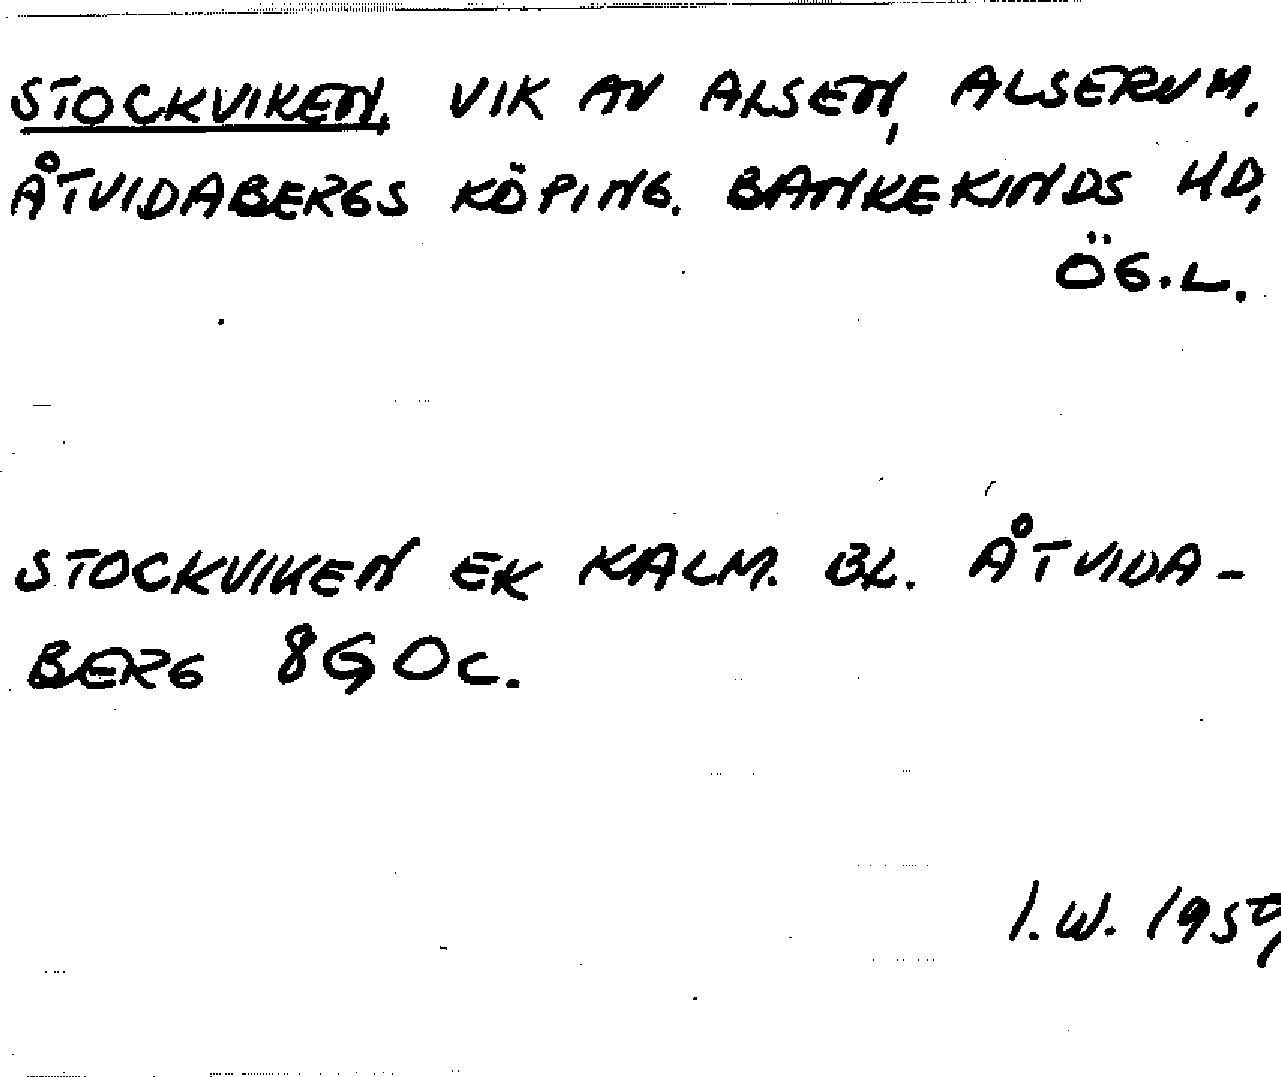 STOCKVIKEN, VIK AV ALSEN, ALSERUM,
ÅTVIDABERGS KÖPING. BANKEKINDS HD,
ÖG.L.
STOCKVIKEN EK KALM. BL. ÅTVIDA-
BERG 8G Oc.
I.W. 1959